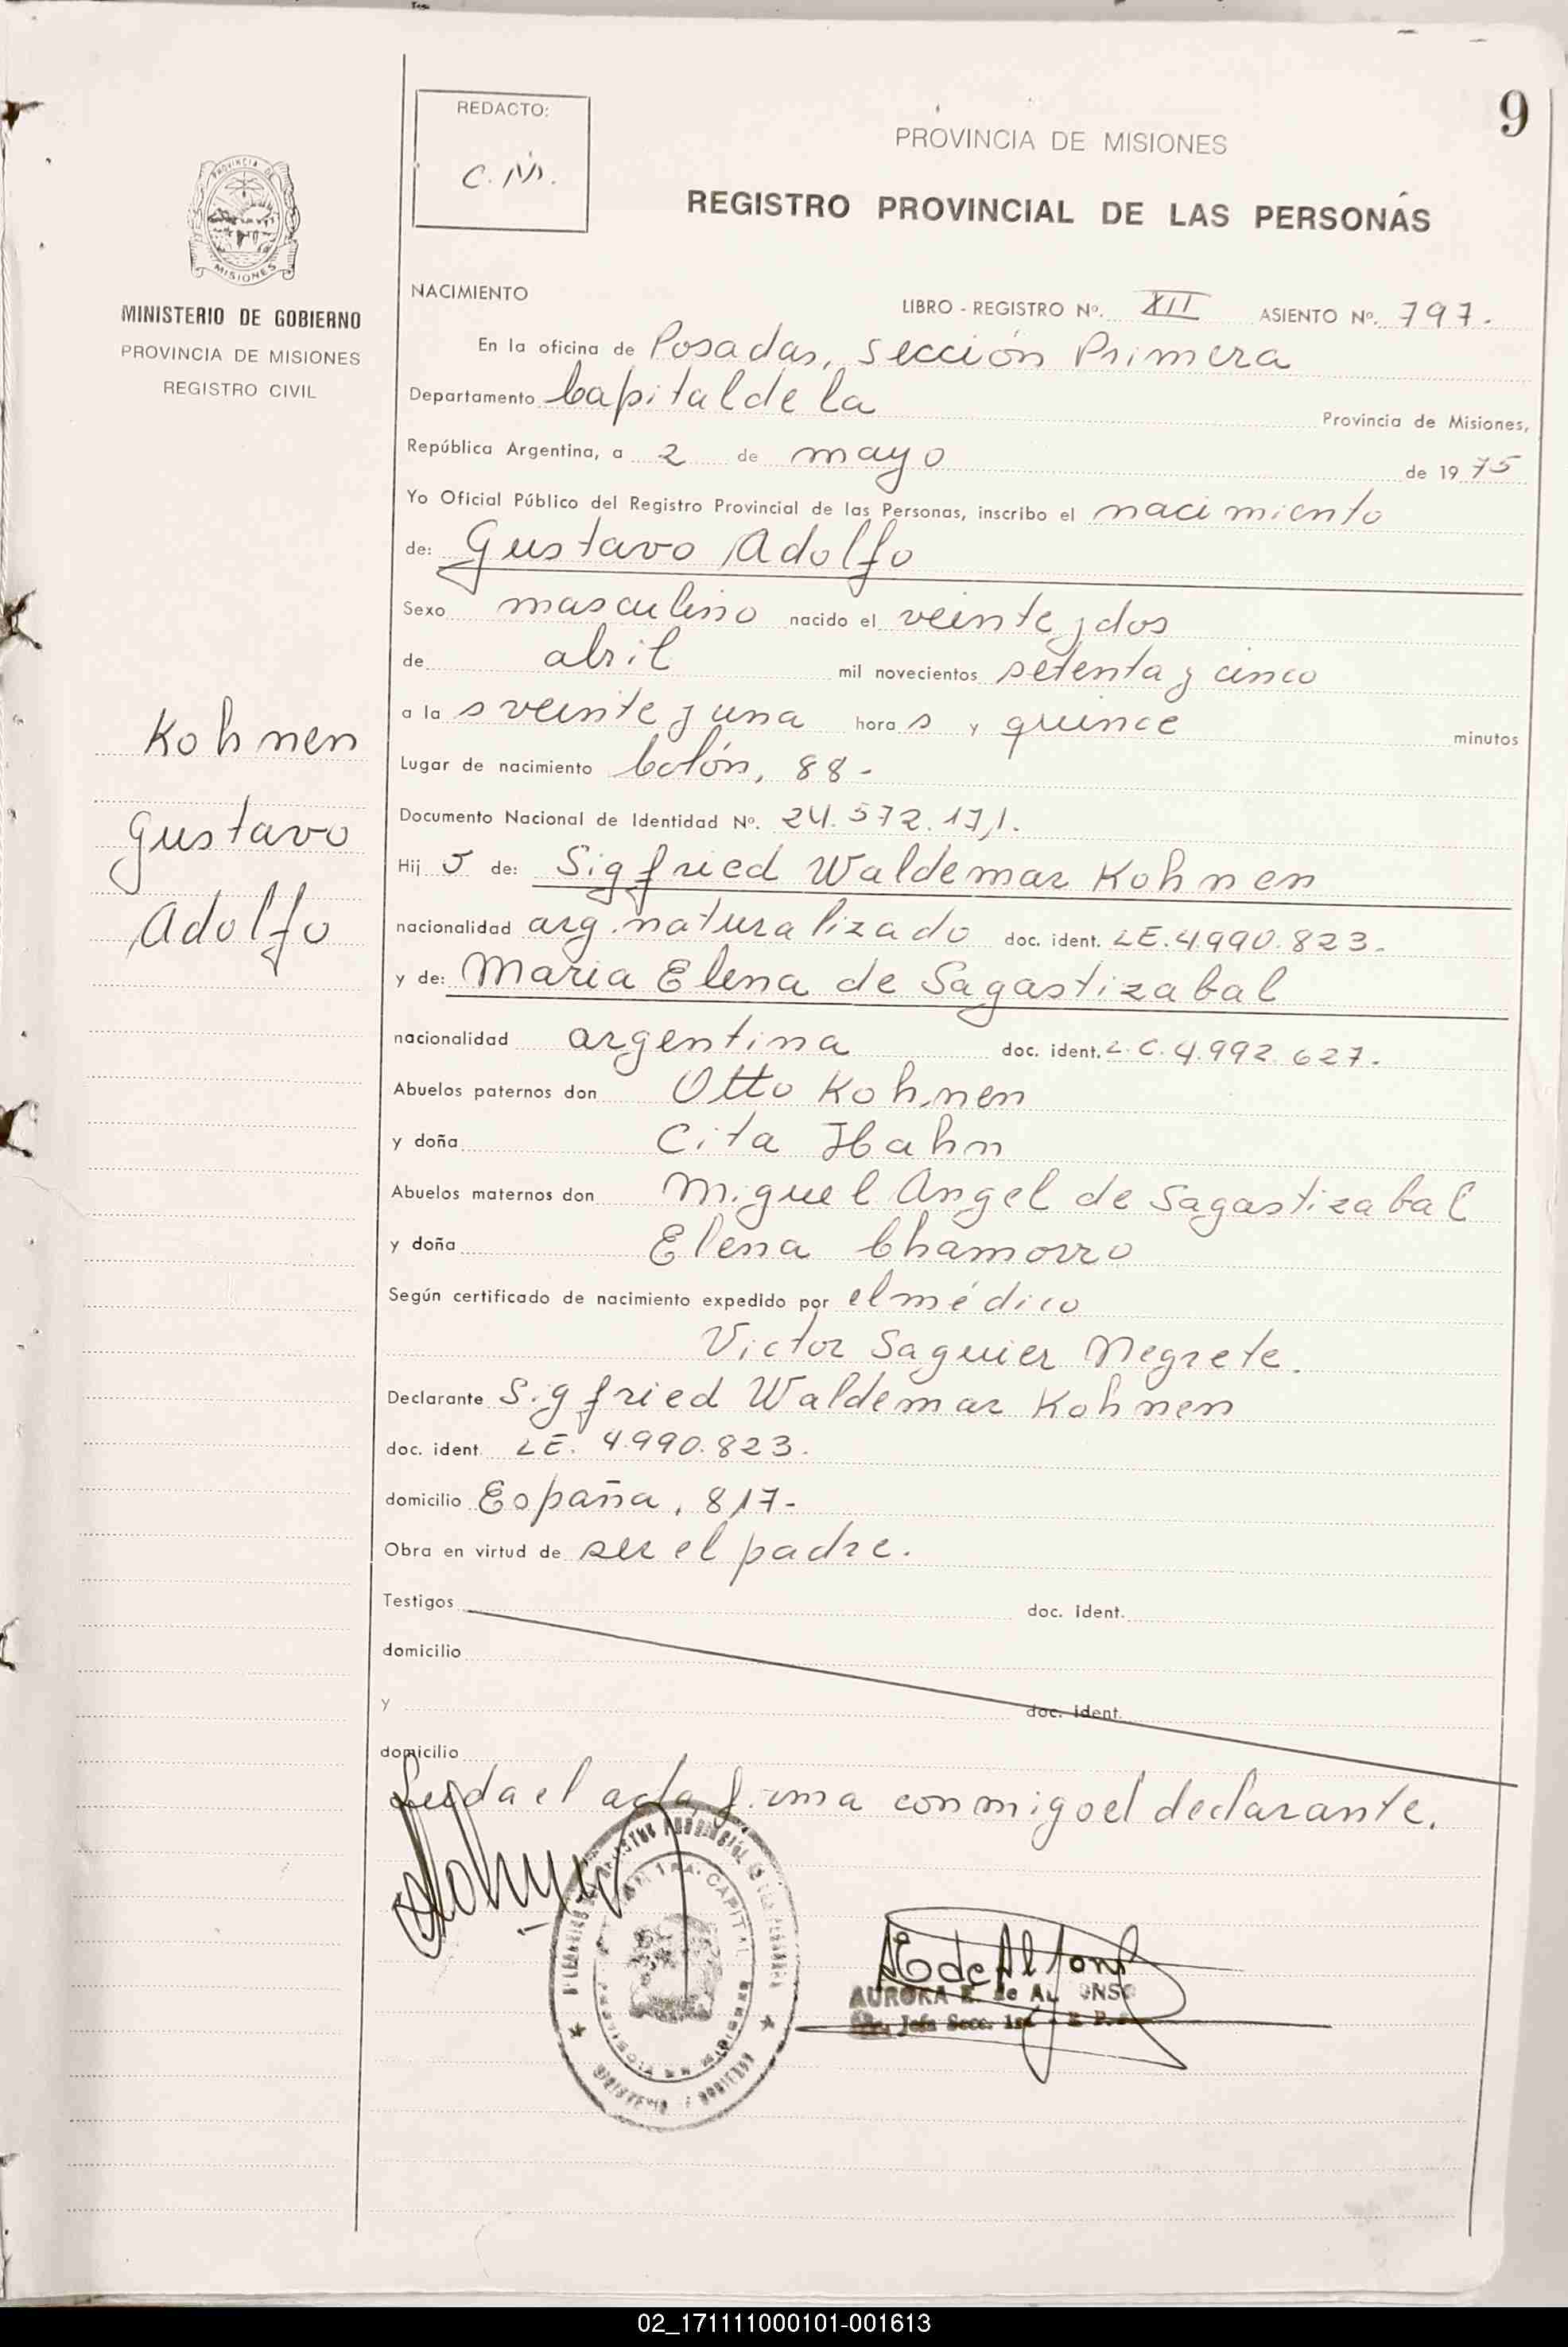 9
REDACTO:
C. M.
PROVINCIA DE MISIONES
REGISTRO PROVINCIAL DE LAS PERSONAS
PROVINCIA DE
MISIONES
MINISTERIO DE GOBIERNO
PROVINCIA DE MISIONES
REGISTRO CIVIL
NACIMIENTO
LIBRO - REGISTRO Nº. XII ASIENTO Nº. 797.
En la oficina de Posadas, sección Primera
Departamento Capital de la Provincia de Misiones,
República Argentina, a 2 de mayo de 1975
Yo Oficial Público del Registro Provincial de las Personas, inscribo el nacimiento
de: Gustavo Adolfo
Sexo masculino nacido el veinte y dos
de abril mil novecientos setenta y cinco
a la s veinte y una hora s y quince minutos
Lugar de nacimiento Colón, 88-
Documento Nacional de Identidad Nº. 24.572.171.
Hij o de: Sigfried Waldemar Kohnen
nacionalidad arg. naturalizado doc. ident. LE. 4990.823.
y de: Maria Elena de Sagastizabal
nacionalidad argentina doc. ident. L.C. 4.992.627.
Abuelos paternos don Otto Kohnen
y doña Cita Hahn
Abuelos maternos don Miguel Angel de Sagastizabal
y doña Elena Chamorro
Según certificado de nacimiento expedido por el médico
Victor Saguier Negrete.
Declarante Sigfried Waldemar Kohnen
doc. ident. LE. 4.990.823.
domicilio España, 817-
Obra en virtud de ser el padre.
Testigos doc. ident.
domicilio
y doc. ident.
domicilio
Leida el acta, firma conmigo el declarante.
Kohnen
Gustavo
Adolfo
1RA. CAPITAL
AURORA E. de ALFONSO
Jefa Secc. 1ra
02_171111000101-001613